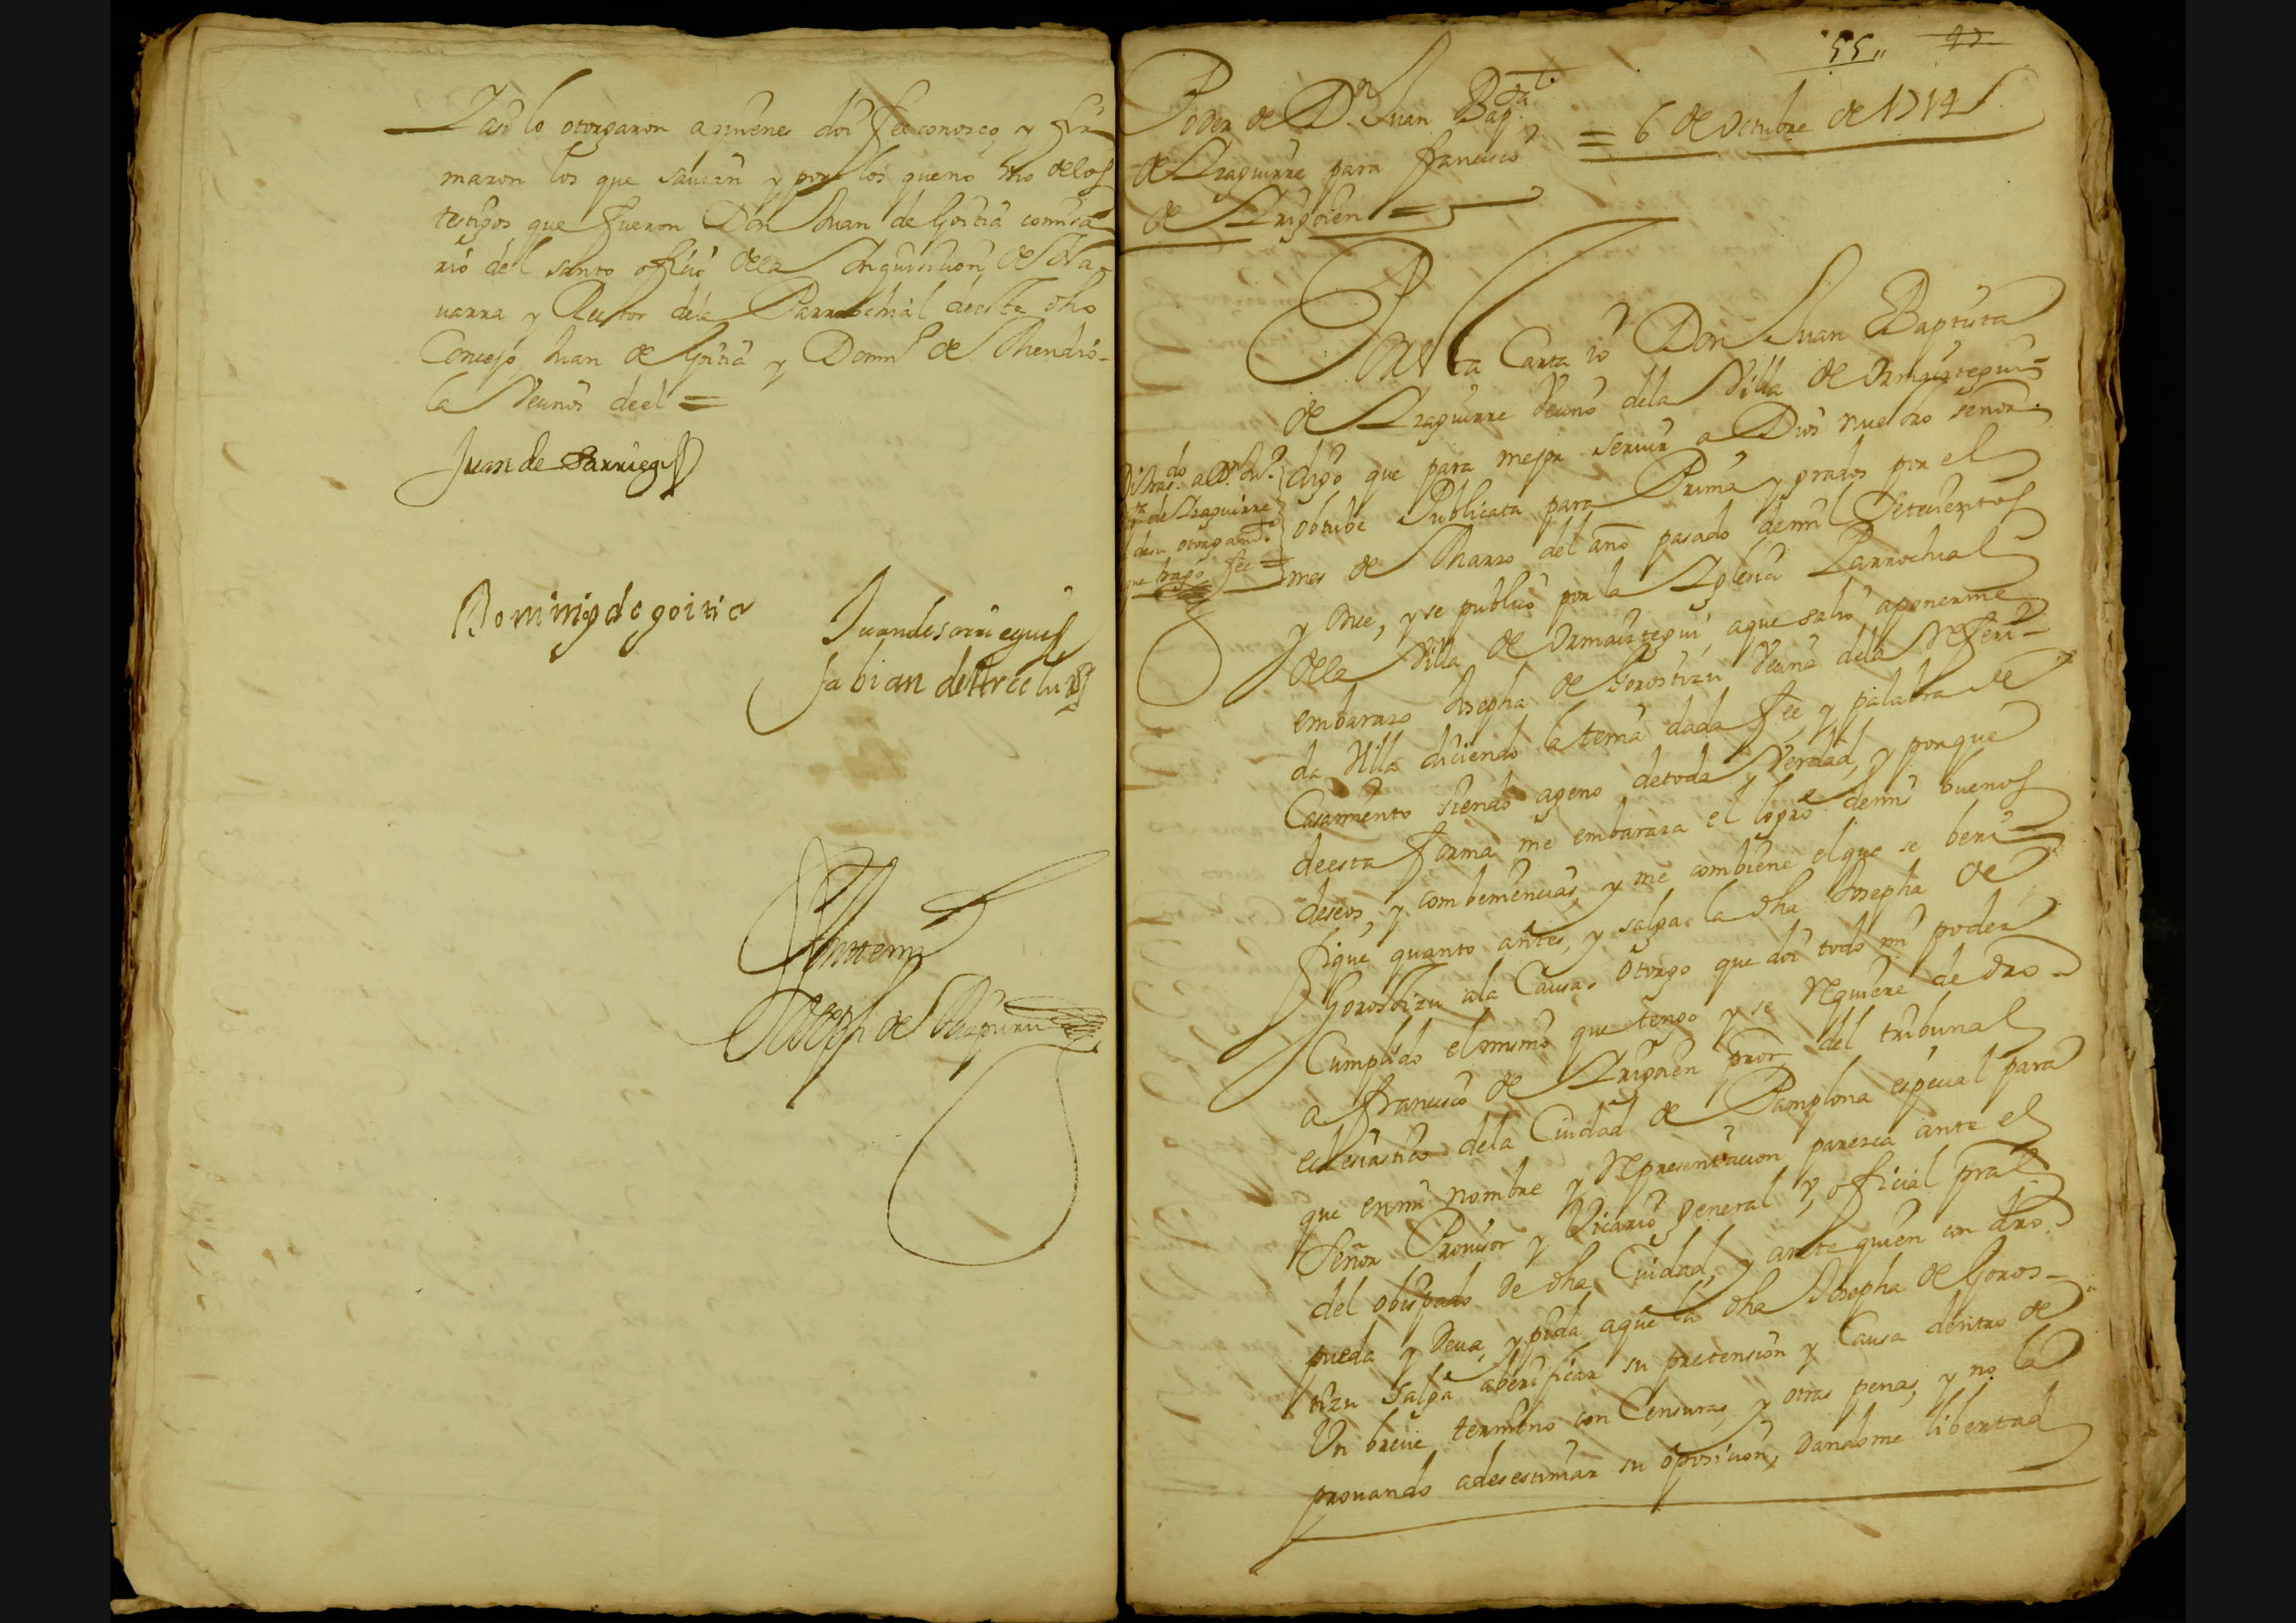 Y asi lo otorgaron aquienes doi fee conozco y fir
maron los que savian y por los que no vno de los
testigos que fueron Don Juan de Goitia comisa
rio del santo oficio dela Inquisicion de Na
uarra y Rector dela Parrochial deeste dho
Concejo Juan de Goitia y Domingo de Mendio
la Vecinos de el =
Juan de Sarriegui
Domingo de goitia
Juan de sarriegui
fabian de
Ante mi
Joseph de
55
Poder de Dn Juan Bapta
de Yzaguirre para francisco
de Yrigoien =
= 6 de Octubre de 1714
Por esta Carta io Don Juan Baptista
de Yzaguirre Vecino dela Villa de Ormaiztegui
digo que para mejor seruir a Dios nuestro señor
obtube Publicata para Prima y grados por el
mes de Marzo del año pasado de mil Setecientos
y onze, y se publico por la Yglesia Parrochial
dela Villa de Ormaiztegui, aque salio aponerme
embarazo Josepha de Gorostizu Vecina dela Referi
da Villa diciendo la tenia dada fee, y palabra de
Casamiento siendo ageno de toda Verdad, y porque
deesta forma me embaraza el logro de mis buenos
deseos, y combeniencias, y me combiene el que se beri
fique quanto antes, y salga la dha Josepha de
Gorostizu ala Causa, Otorgo que doi todo mi poder
Cumplido el mismo que tengo y se Requiere de dro
a francisco de Yrigoien pror del tribunal
eclesiastico dela Ciudad de Pamplona especial para
que en mi nombre y Representacion parezca ante el
Señor Prouisor y Vicario general y oficial pral
del obispado de dha Ciudad, y ante quien con dro
pueda y deua, y pida aque la dha Josepha de Goros
tizu salga aberificar su pretension y Causa dentro de
Vn breue termino con Censuras, y otras penas, y no la
prouando adesestimar su oposicion, dandome libertad
Di tras.do a Dn Ju.o
Bta de Yzaguirre
desu otorgamto
que hago fee